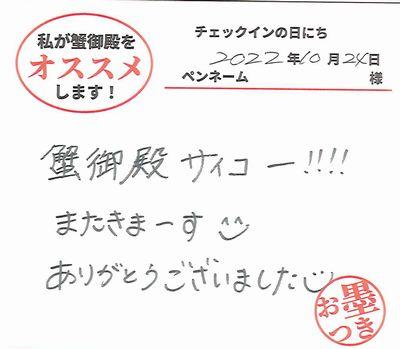 私が蟹御殿を
オススメ
します！
チェックインの日にち
2022年10月24日
ペンネーム 様
蟹御殿サイコー!!!!
またきまーす
ありがとうございました
お墨
つき